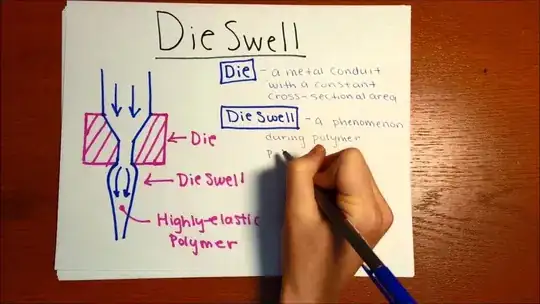 Die Swell
Die - a metal conduit
with a constant
cross-sectional area
Die Swell - a phenomenon
during polymer
Die
Die Swell
Highly-elastic
Polymer